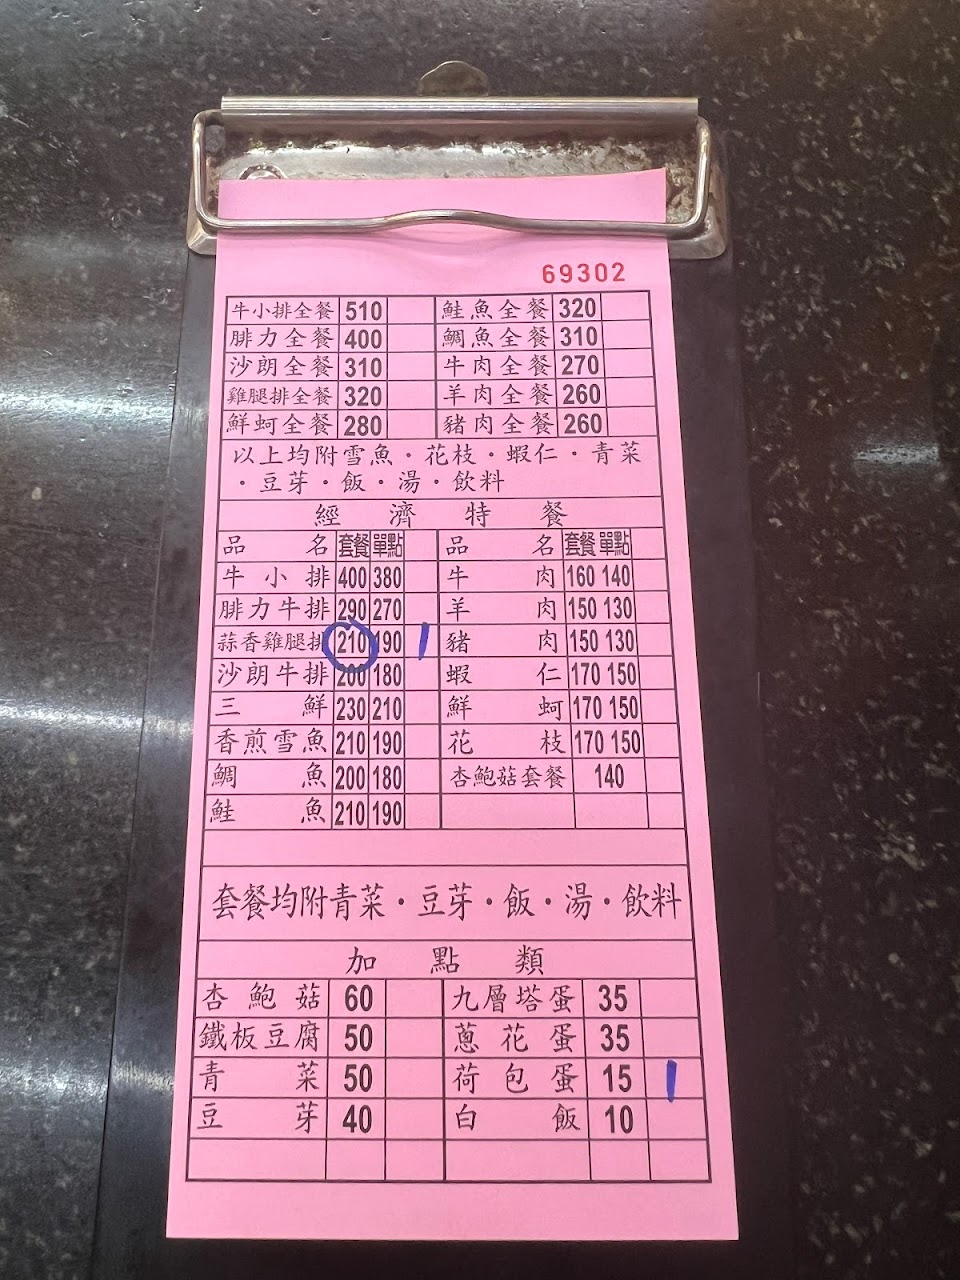 69302
牛小排全餐 510 鮭魚全餐 320
腓力全餐 400 鯛魚全餐 310
沙朗全餐 310 牛肉全餐 270
雞腿排全餐 320 羊肉全餐 260
鮮蚵全餐 280 豬肉全餐 260
以上均附雪魚·花枝·蝦仁·青菜
·豆芽·飯·湯·飲料
經濟特餐
品名 套餐 單點 品名 套餐 單點
牛小排 400 380 牛肉 160 140
腓力牛排 290 270 羊肉 150 130
蒜香雞腿排 210 190 豬肉 150 130
沙朗牛排 200 180 蝦仁 170 150
三鮮 230 210 鮮蚵 170 150
香煎雪魚 210 190 花枝 170 150
鯛魚 200 180 杏鮑菇套餐 140
鮭魚 210 190
套餐均附青菜·豆芽·飯·湯·飲料
加點類
杏鮑菇 60 九層塔蛋 35
鐵板豆腐 50 蔥花蛋 35
青菜 50 荷包蛋 15
豆芽 40 白飯 10